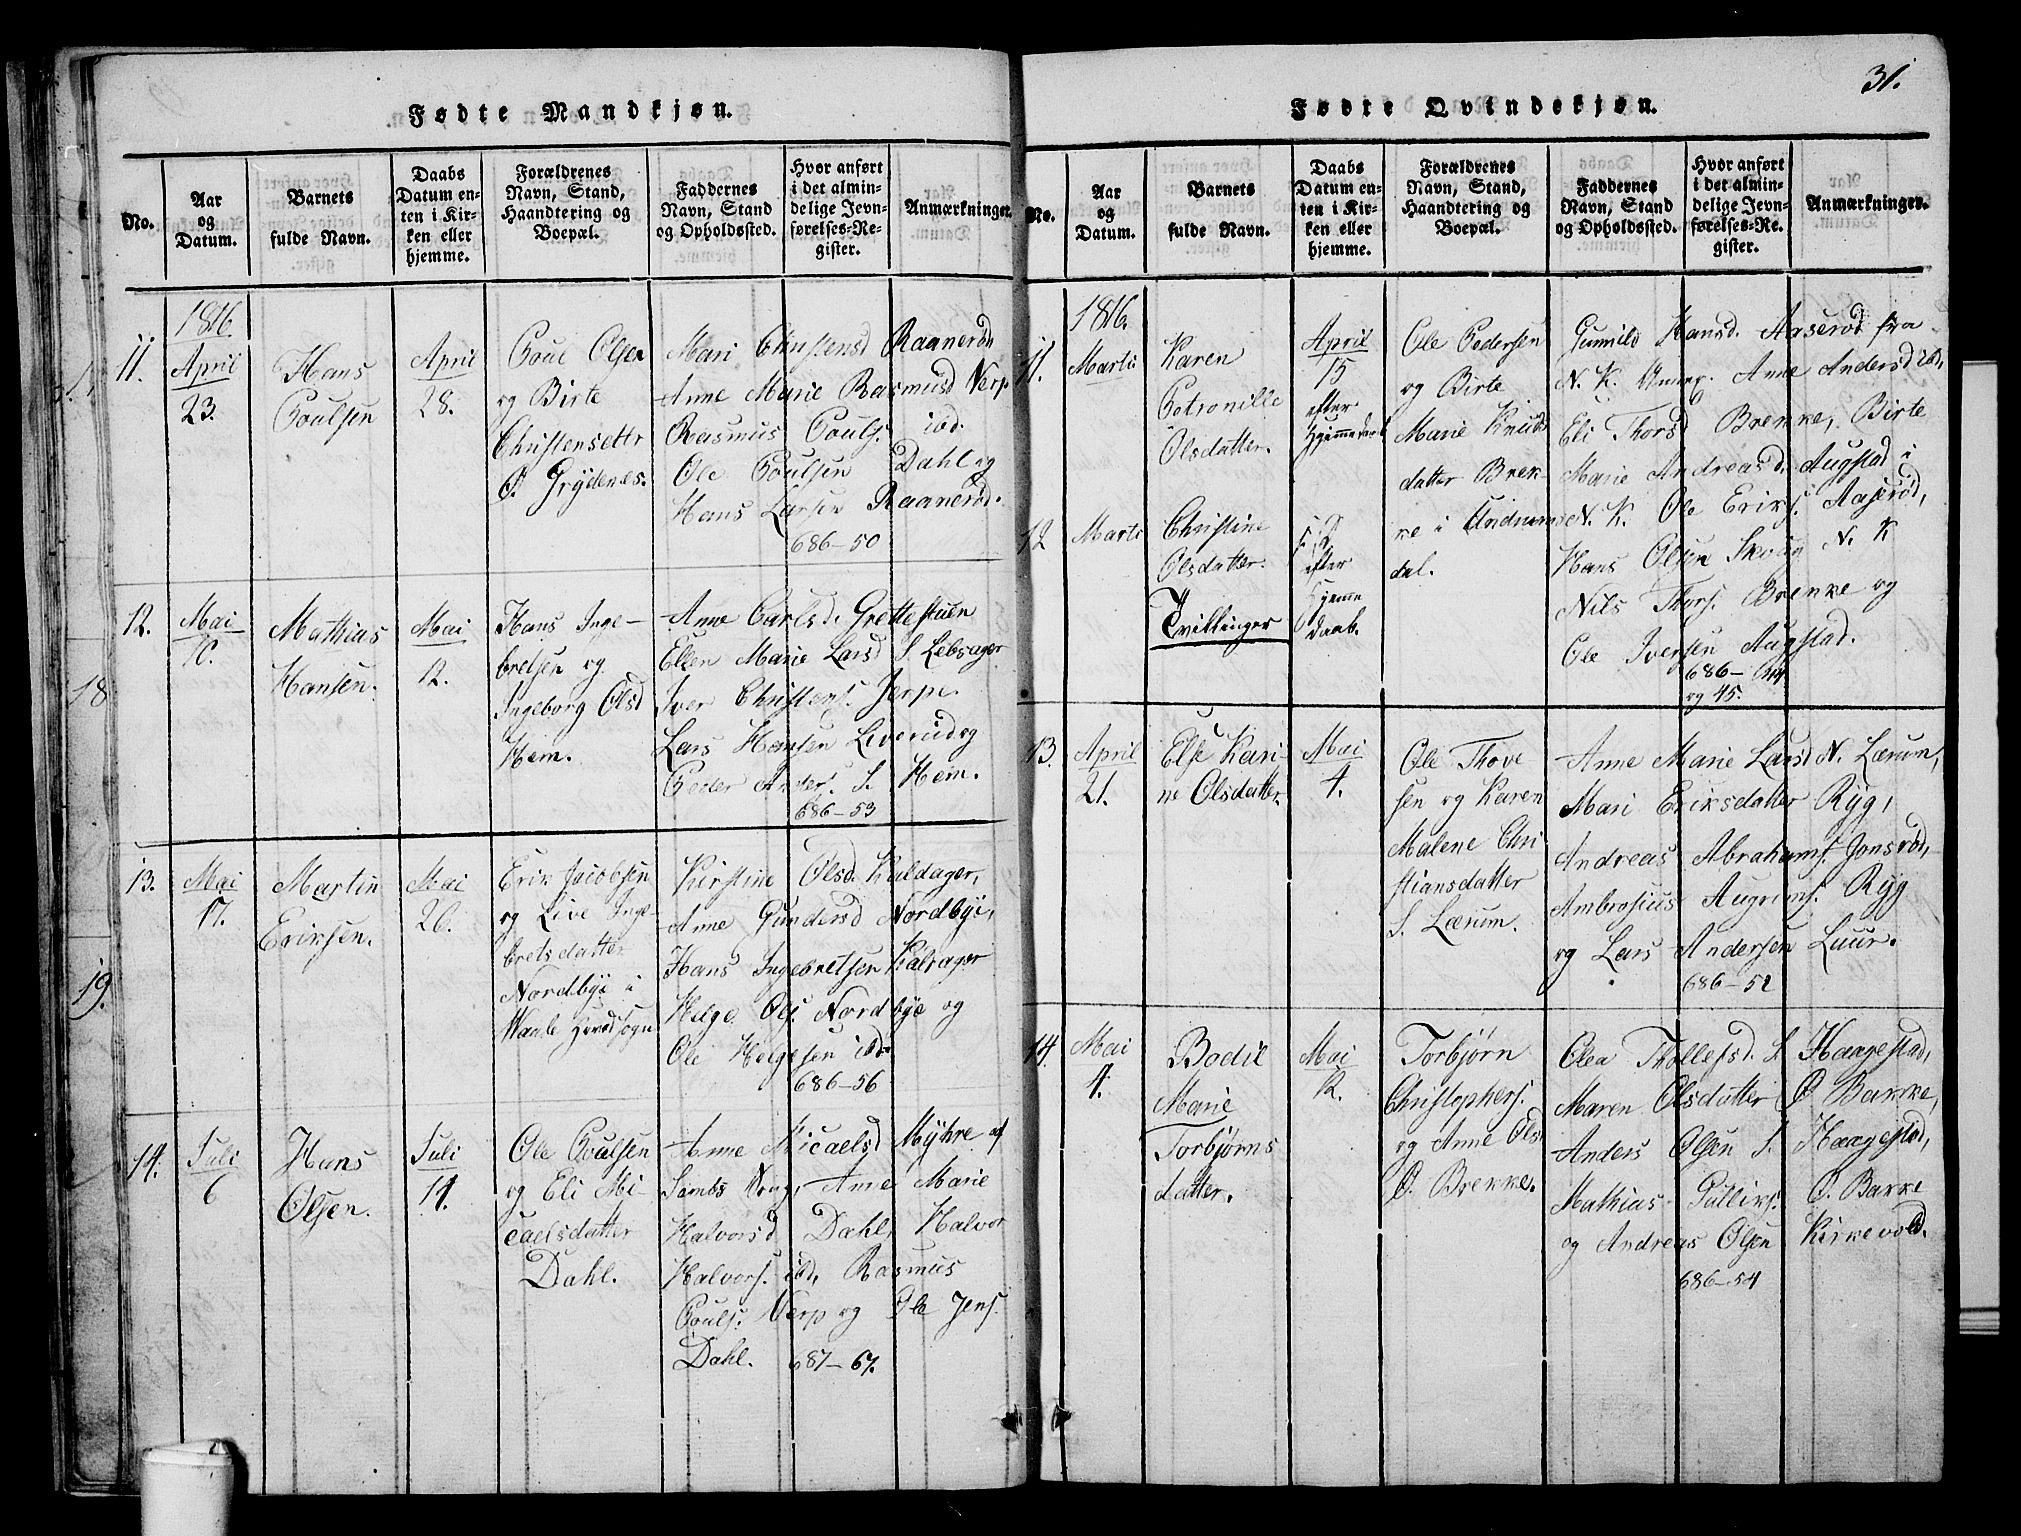 Fødte Mandkjøn.
No.
Aar
og
Datum.
Barnets
fulde Navn.
Daabs
Datum en-
ten i Kir-
ken eller
hjemme.
Forældrenes
Navn, Stand,
Haandtering og
Boepæl.
Faddernes
Navn, Stand
og Opholdssted.
Hvor anført
i det almin-
delige Jevn-
førelses-Re-
gister.
Anmærkninger.
11.
1816.
April
23.
Hans
Poulsen
April
28.
Poul Olsen
og Birte
Christensdttr
Ø. Grydenes.
Mari Christensd Raanerød
Anne Marie Rasmusd Verp
Rasmus Pouls. ibd.
Ole Poulsen Dahl og
Hans Larsen Raanerød.
686-50
12.
Mai
10.
Mathias
Hansen.
Mai
12.
Hans Inge-
bretsen og
Ingeborg Olsd
Hem.
Anne Carlsd. Grettestuen
Ellen Marie Larsd S. Lebsager
Iver Christens. Jerpe.
Lars Hansen Liverud og
Peder Anders. S. Hem.
686-53
13.
Mai
17.
Martin
Eriksen.
Mai
26.
Erik Jacobsen
og Live Inge-
bretsdatter
Nordbye i
Waale Hovedsogn
Kirstine Olsd. Kaldager,
Anne Gundersd Nordbye,
Hans Ingebretsen Kaldager
Helge Ols. Nordbye og
Ole Helgesen ibd.
686-56
14.
Juli
6
Hans
Olsen.
Juli
14.
Ole Poulsen
og Eli Mi-
caelsdatter
Dahl.
Anne Micaelsd Myhre af
Sembs Sogn, Anne Marie
Halvorsd Dahl, Halvor
Halvors. ibd, Rasmus
Pouls. Verp og Ole Jens.
Dahl. 687-67.
31.
Fødte Qvindekjøn.
No.
Aar
og
Datum.
Barnets
fulde Navn.
Daabs
Datum en-
ten i Kir-
ken eller
hjemme.
Forældrenes
Navn, Stand,
Haandtering og
Boepæl.
Faddernes
Navn, Stand
og Opholdssted.
Hvor anført
i det almin-
delige Jevn-
førelses-Re-
gister.
Anmærkninger.
11.
1816.
Marti
Karen
Petronille
Olsdatter.
April
15
efter
Hjemmedaab
Ole Pedersen
og Birte
Marie Knuds
datter Brek-
ke i Undrums
dal.
Gunnild Hansd. Aaserød fra
N. K. Annex. Anne Andersd ibd,
Eli Thorsd Brekke, Birte
Marie Andreasd. Augstad i
N. K. Ole Eriks. Aaserød,
Hans Olsen Skoug N. K
Nils Thors. Brekke og
Ole Iversen Augstad.
686-44
og 45.
12
Marti
Christine
Olsdatter.
Tvillinger
efter
Hjemme
daab.
13.
April
21.
Else Kari-
ne Olsdatter.
Mai
4.
Ole Thove
sen og Karen
Malene Chri
stiansdatter
S. Lærum.
Anne Marie Larsd N. Lærum,
Mari Eriksdatter Ryg,
Andreas Abrahams. Jonsrød,
Ambrosius Augrims. Ryg
og Lars Andersen Luur.
686-52
14.
Mai
4.
Bodil
Marie
Torbjørns
datter.
Mai
12.
Torbjørn
Christophers.
og Anne Olsd
Ø. Brekke.
Olea Thollefsd. S. Haagestad,
Maren Olsdatter Ø Bakke,
Anders Olsen S. Haagestad,
Mathias Gulliks. Ø. Bakke
og Andreas Olsen Kirkevold.
686-54
18
19.